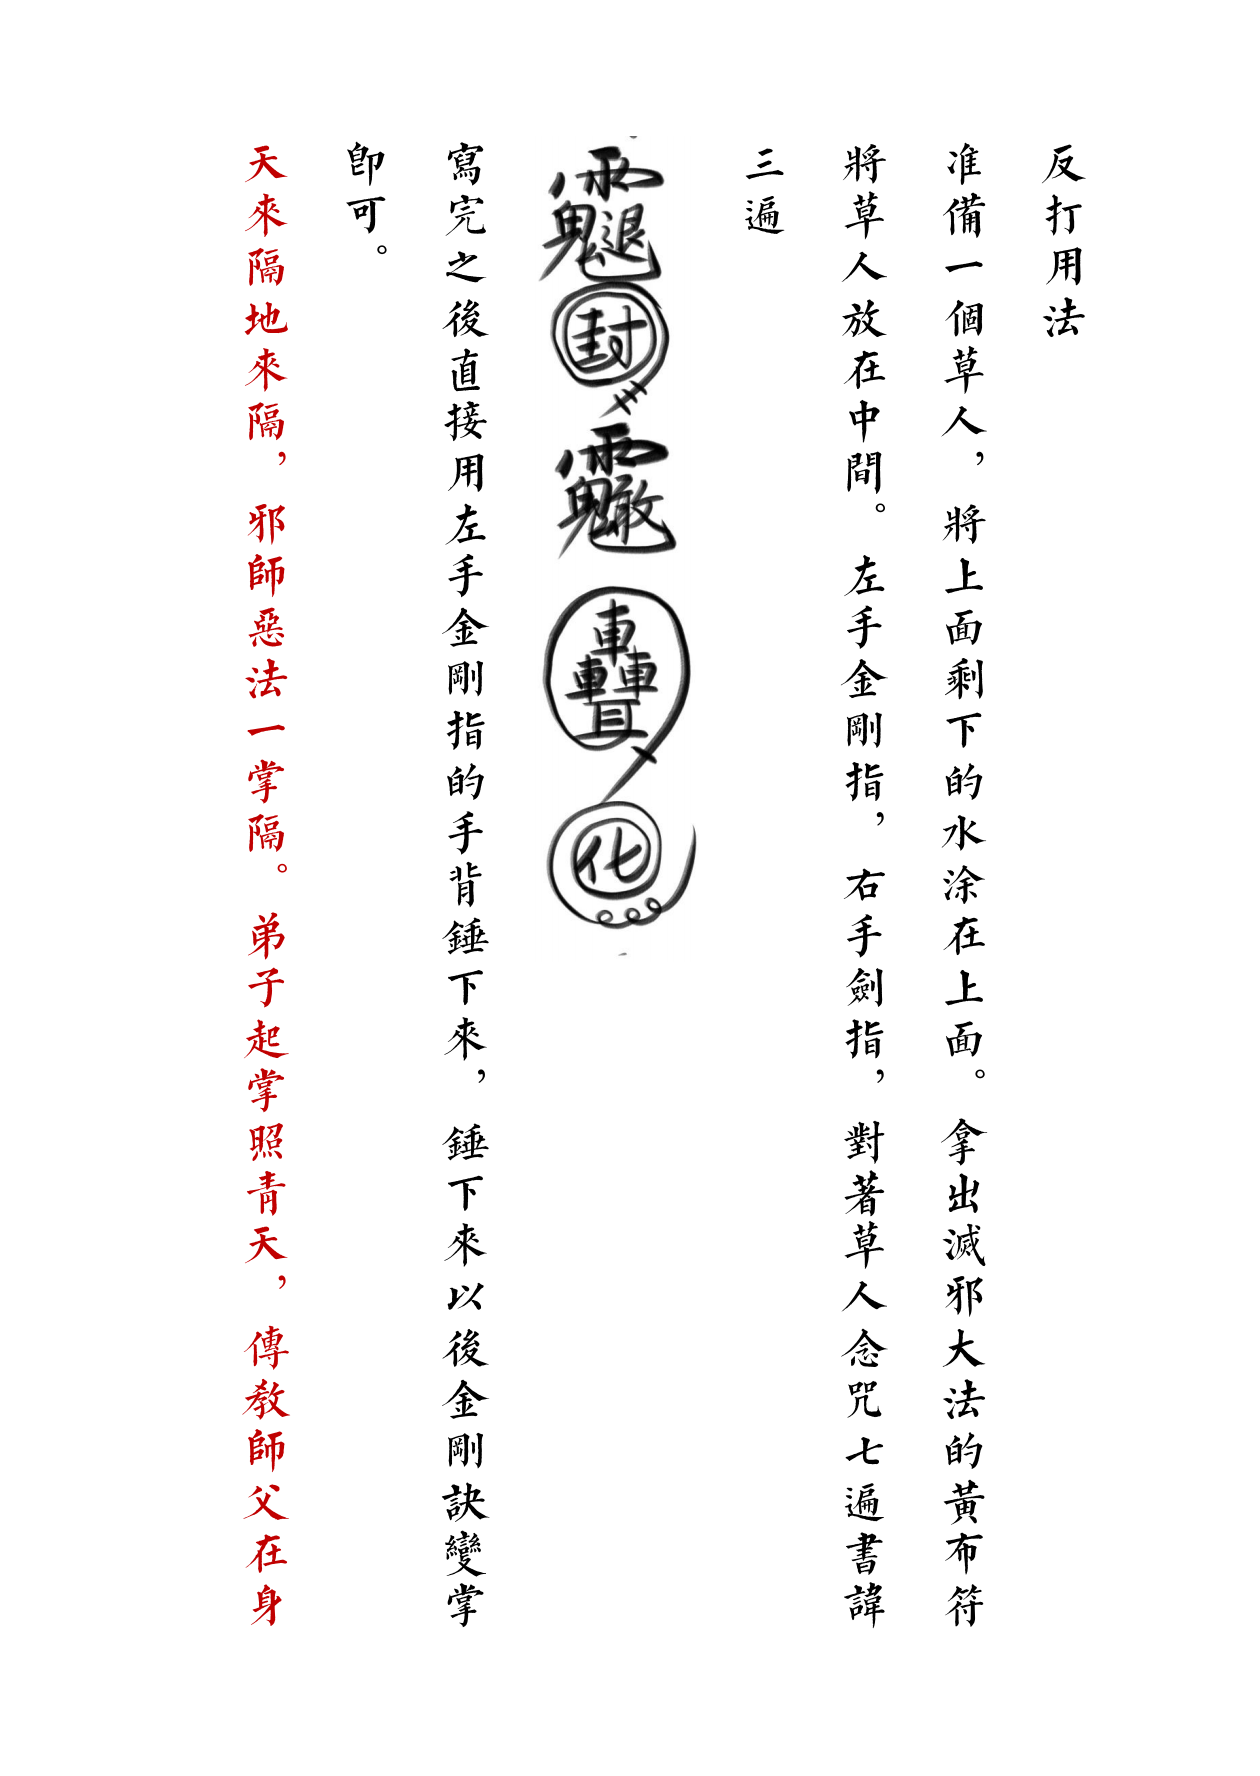 反打用法
准備一個草人，將上面剩下的水涂在上面。拿出滅邪大法的黃布符
將草人放在中間。左手金剛指，右手劍指，對著草人念咒七遍書諱
三遍
封
化
寫完之後直接用左手金剛指的手背錘下來，錘下來以後金剛訣變掌
即可。
天來隔地來隔，邪師惡法一掌隔。弟子起掌照青天，傳教師父在身